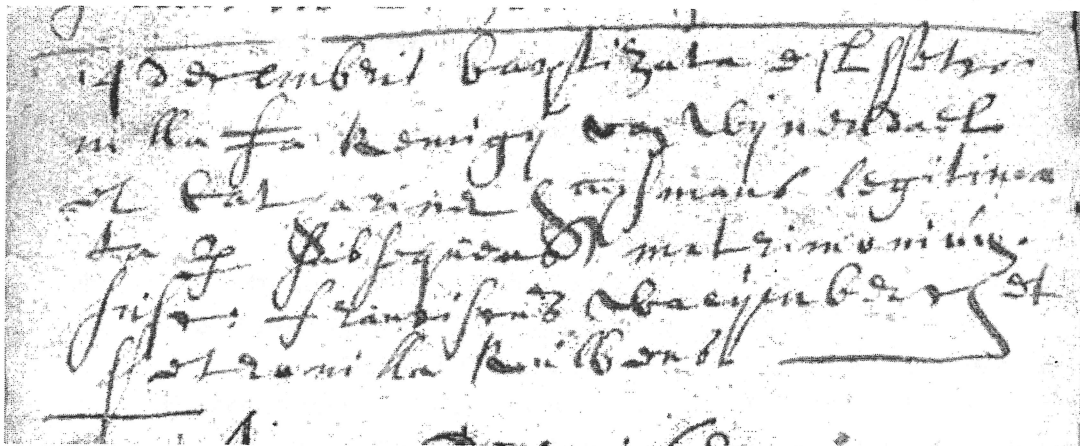 14 decembris baptizata est petro
nilla fa Remigij van Wijnendaele
et Catarinae huijsmans legitima
ta per subsequens matrimonium.
susc: franciscus Waeijenber et
petronilla